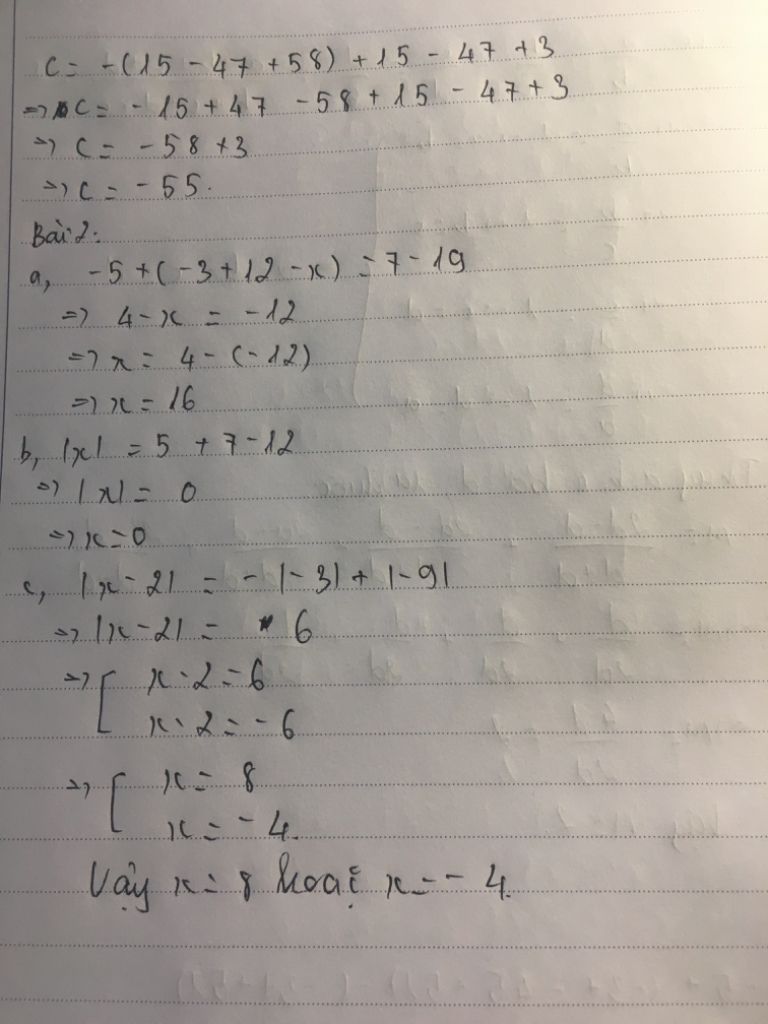 C = -(15 - 47 + 58) + 15 - 47 + 3
=> C = -15 + 47 - 58 + 15 - 47 + 3
=> C = -58 + 3
=> C = -55.
Bài 2:
a, -5 + (-3 + 12 - x) = 7 - 19
=> 4 - x = -12
=> x = 4 - (-12)
=> x = 16
b, |x| = 5 + 7 - 12
=> |x| = 0
=> x = 0
c, |x - 2| = -|-3| + |-9|
=> |x - 2| = 6
=> [ x - 2 = 6
x - 2 = -6
=> [ x = 8
x = -4.
Vậy x = 8 hoặc x = -4.